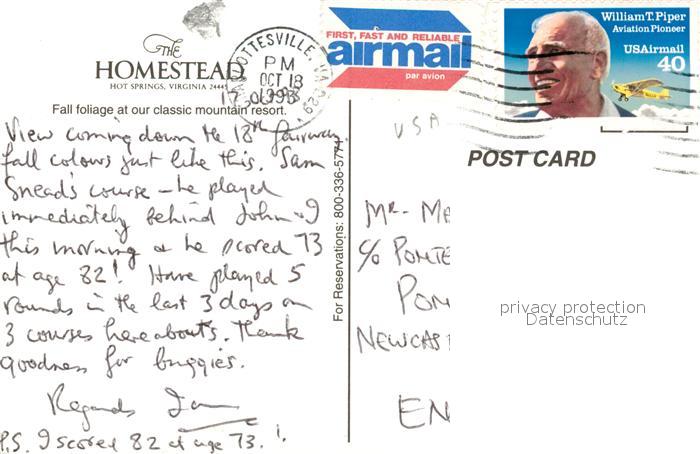 The
HOMESTEAD
HOT SPRINGS, VIRGINIA 24445
Fall foliage at our classic mountain resort.
OTTESVILLE, VA
PM
OCT 18
1993
FIRST, FAST AND RELIABLE
airmail
par avion
William T. Piper
Aviation Pioneer
USAirmail
40
17
View coming down the 18th fairway
fall colours just like this. Sam
Snead's course - he played
immediately behind John & I
this morning & he scored 73
at age 82! Have played 5
rounds in the last 3 days on
3 courses hereabouts. Thank
goodness for buggies.
Regards Ian
P.S. I scored 82 at age 73.!
For Reservations: 800-336-5771
USA
POST CARD
Mr. Me
c/o PONTE
PON
NEWCAS
EN
privacy protection
Datenschutz